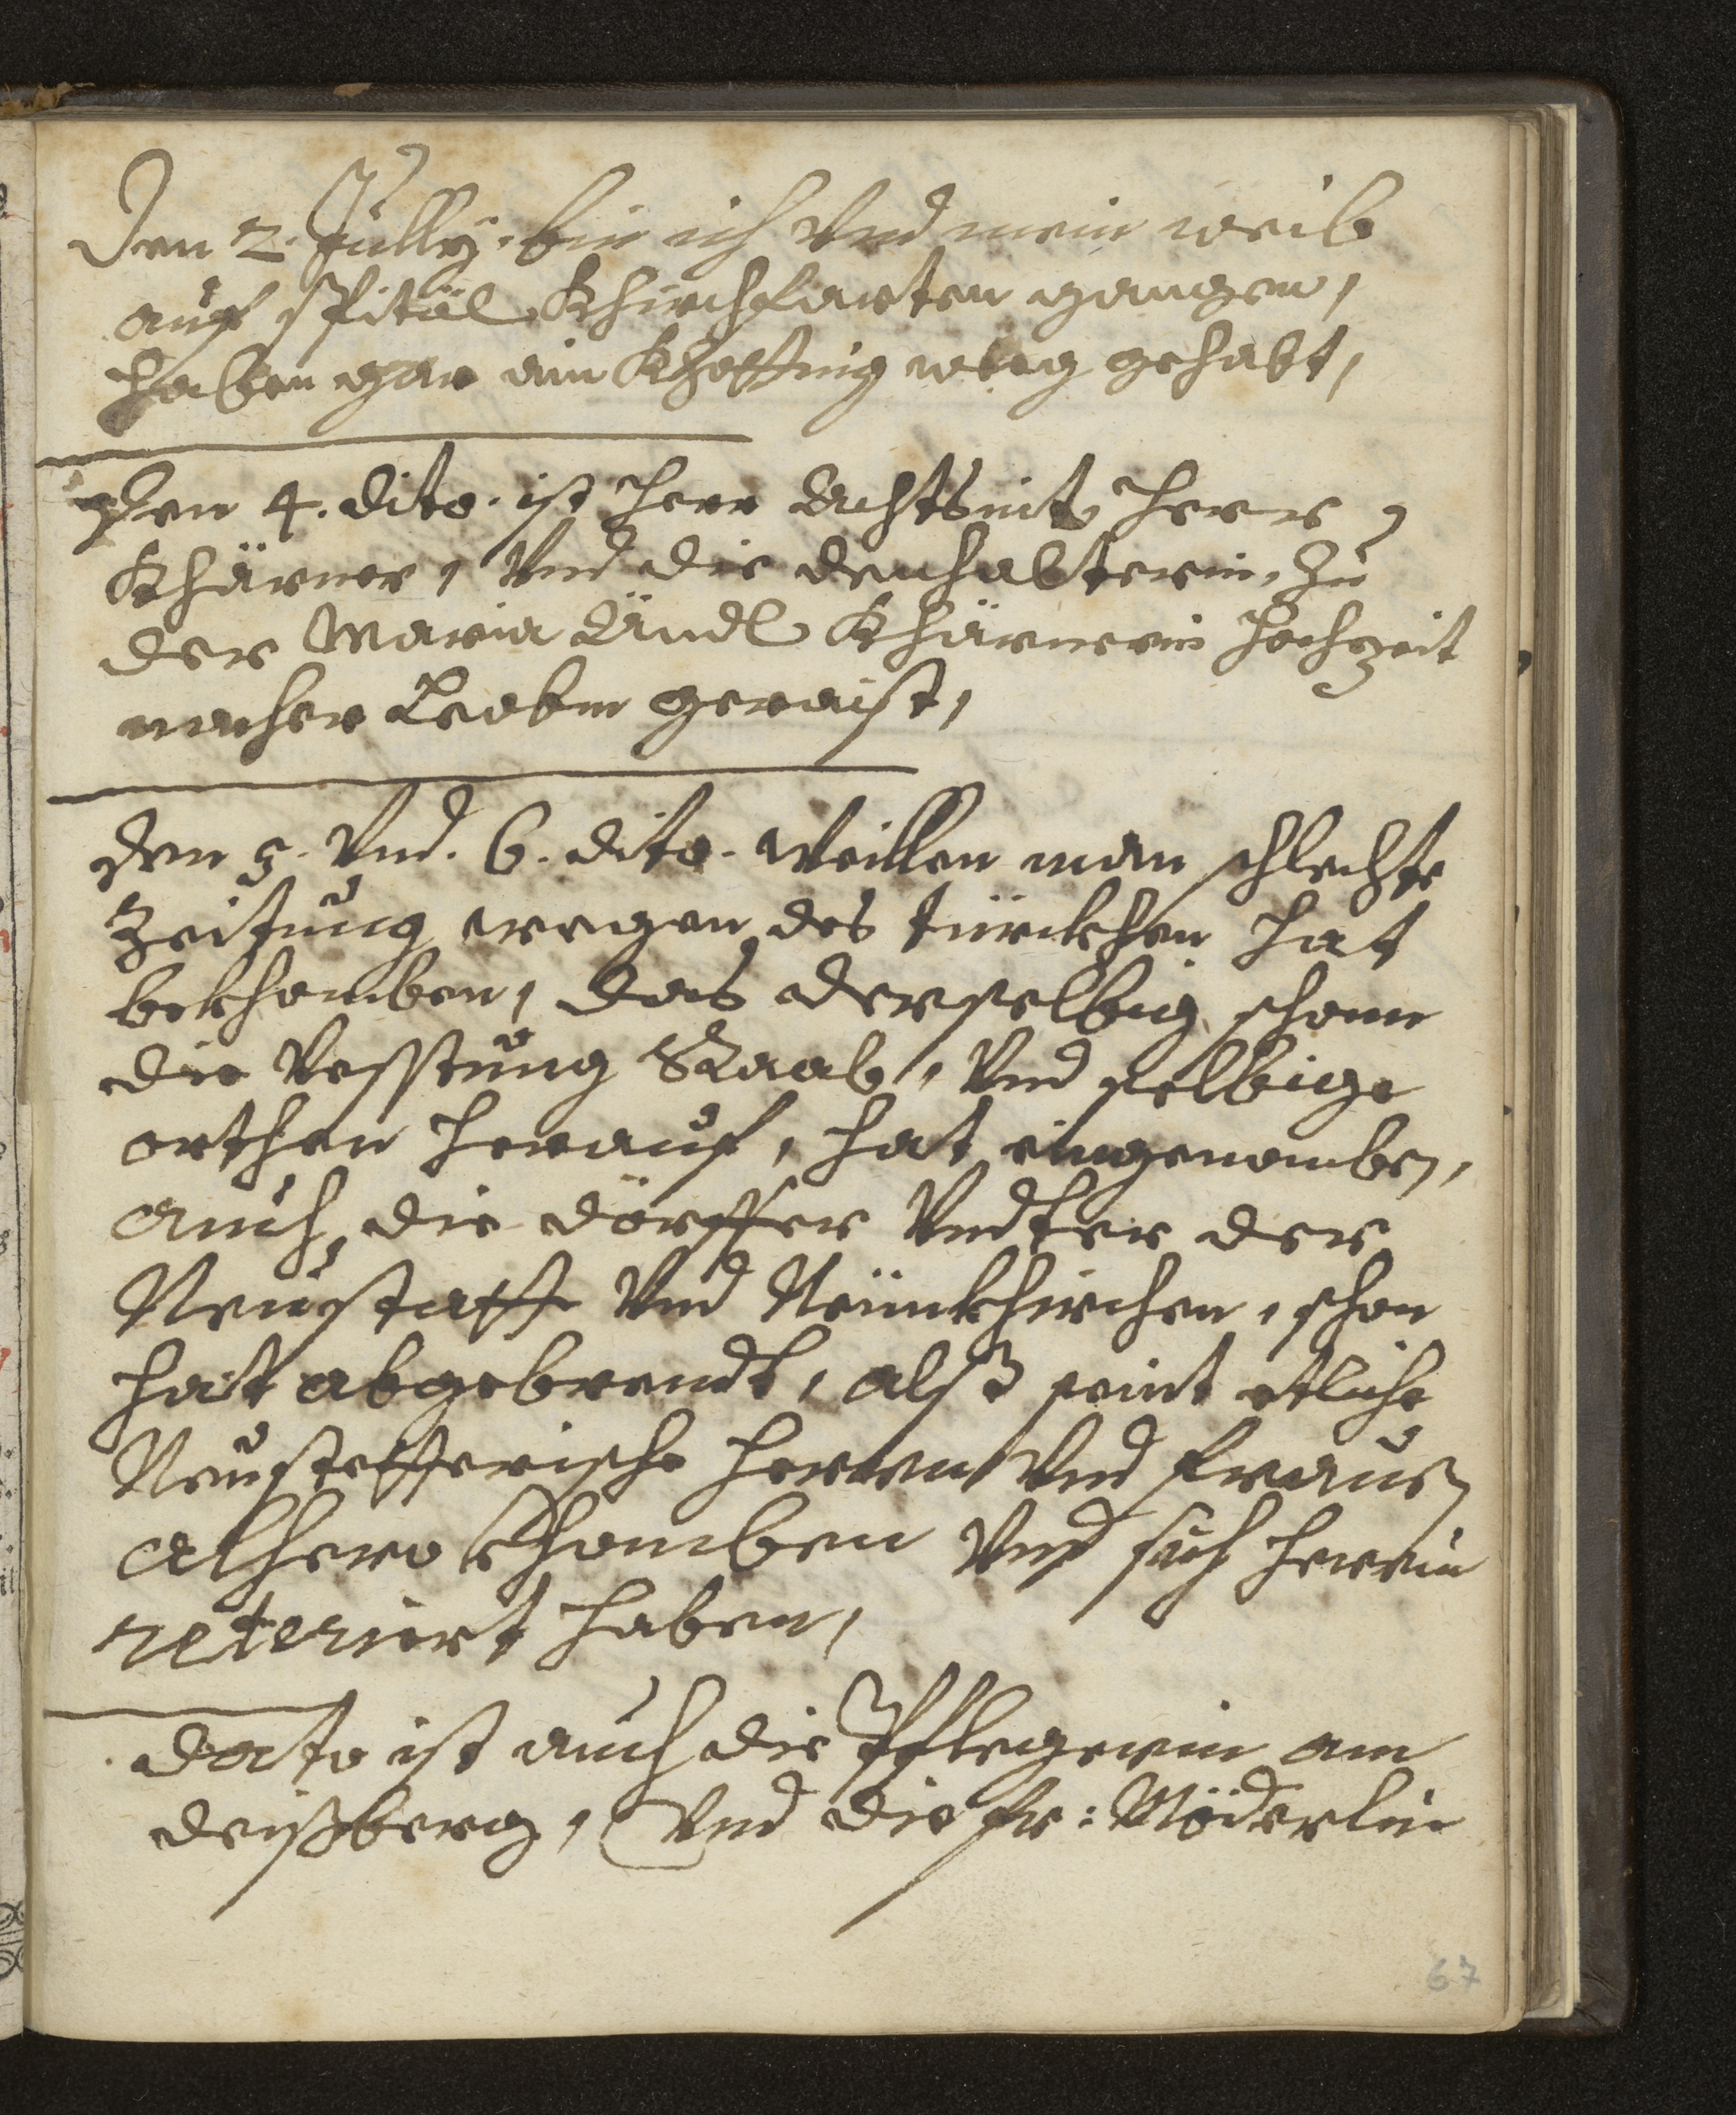 Den 2. Jully. bin ich Vnd mein weib
auf spitäl Khirchfarten gangen,
haben gar ein Khottig weeg gehabt,
Den 4. dito. ist Herr Herr
Khärner, Vnd die zu
der Maria Ändl Khärnerin Hochzeit
nacher Leobm geraist,
den 5. Vnd. 6. dito. Weillen man schlechte
Zeitung wegen des türckhen hat
bekhomben, das derselbig schonn
die Vesstung Raab, Vnd selbige
orthen herauf, hat eingenomben,
auch die dörffer Vndter der
Neustatt Vnd Neünkhirchen, schon
hatt abgebrendt, alß seint etliche
Neustetterische herren Vnd frauen
alhero Khomben Vnd sich herein
reteriert haben,
dato ist auch die Pflegerin am
deißberg, Vnd die fr: Möderlin
67